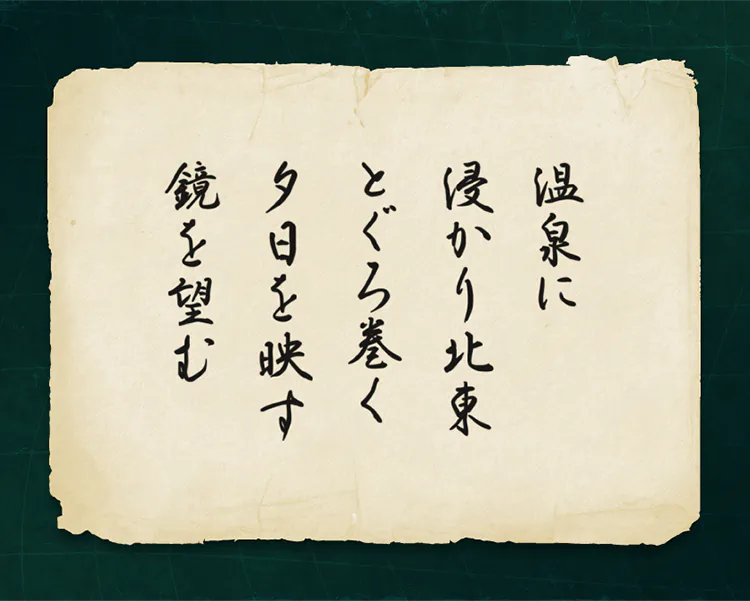 温泉に
浸かり北東
とぐろ巻く
夕日を映す
鏡を望む